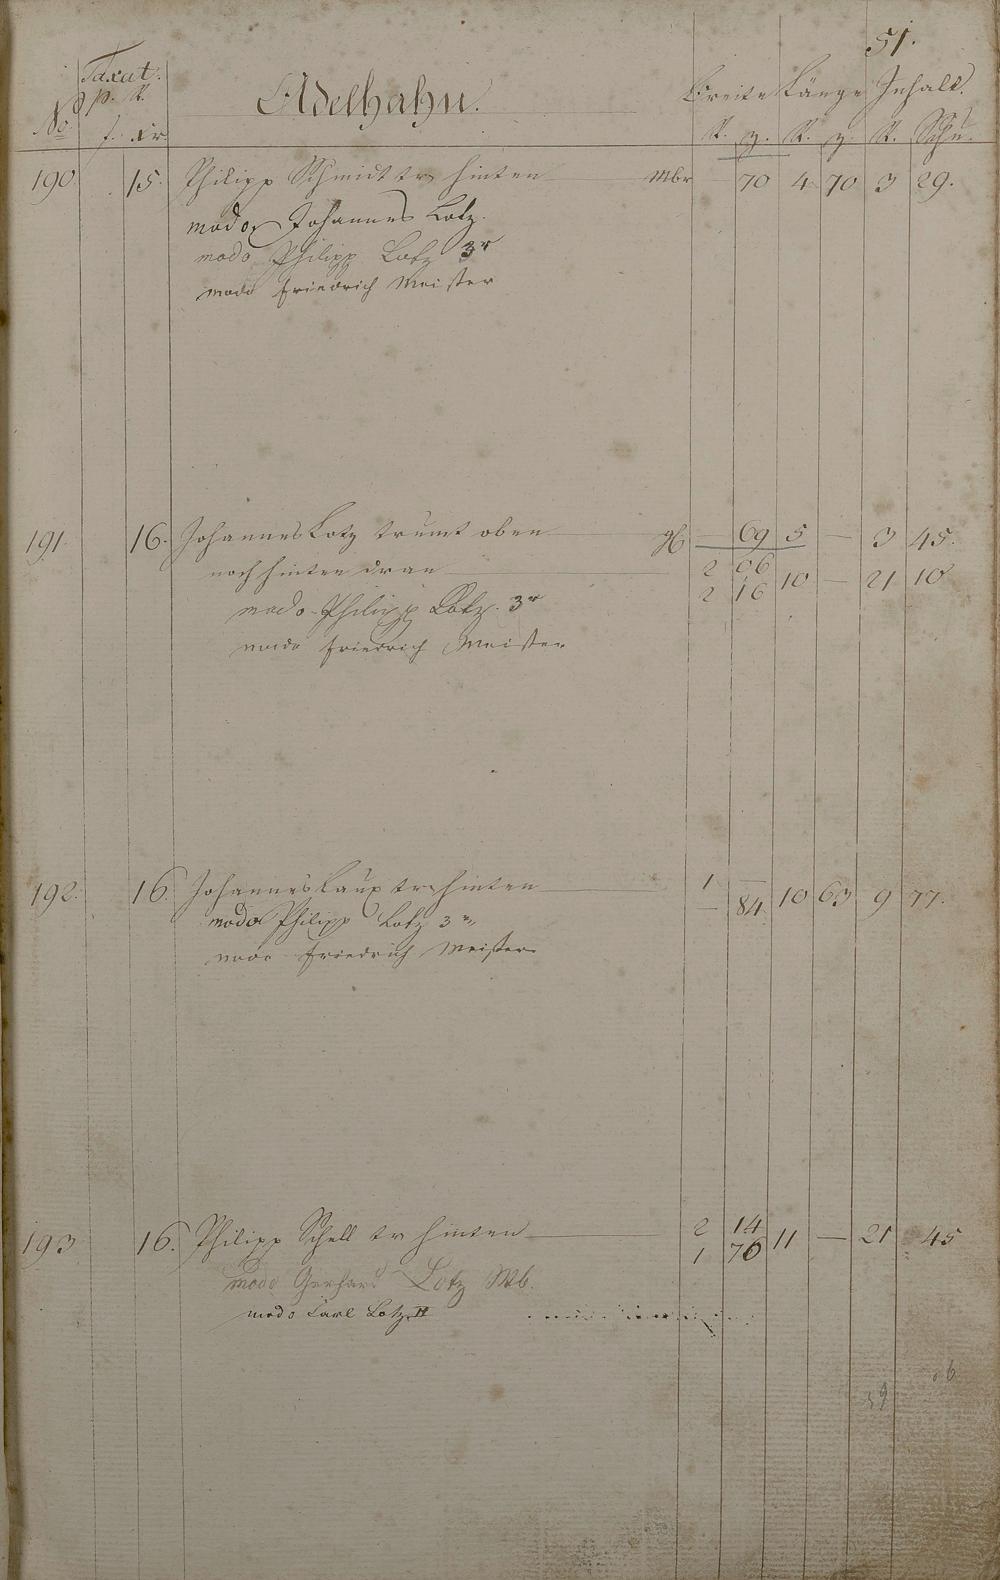 51.
Taxat.
No. p. R. Adelhahn. Breite Länge Inhalt.
f. xr. R. z. R. z. R. Schu.
190 15. Philipp Schmidt tr hinten Mbr 70 4 70 3 29.
modo Johannes Lotz.
modo Philipp Lotz 3r
modo Friedrich Meister
191. 16. Johannes Lotz trumt oben — 69 5 — 3 45.
noch hinten dran 2 06 10 — 21 10
2 16
modo Philipp Lotz. 3r
modo Friedrich Meister
192. 16. Johannes Laux tr hinten 1 — 10 63 9 77.
— 84
modo Philipp Lotz 3r
modo Friedrich Meister
193 16. Philipp Schell tr hinten 2 14 11 — 21 45
1 76
modo Gerhard Lotz Wb.
modo Carl Lotz II